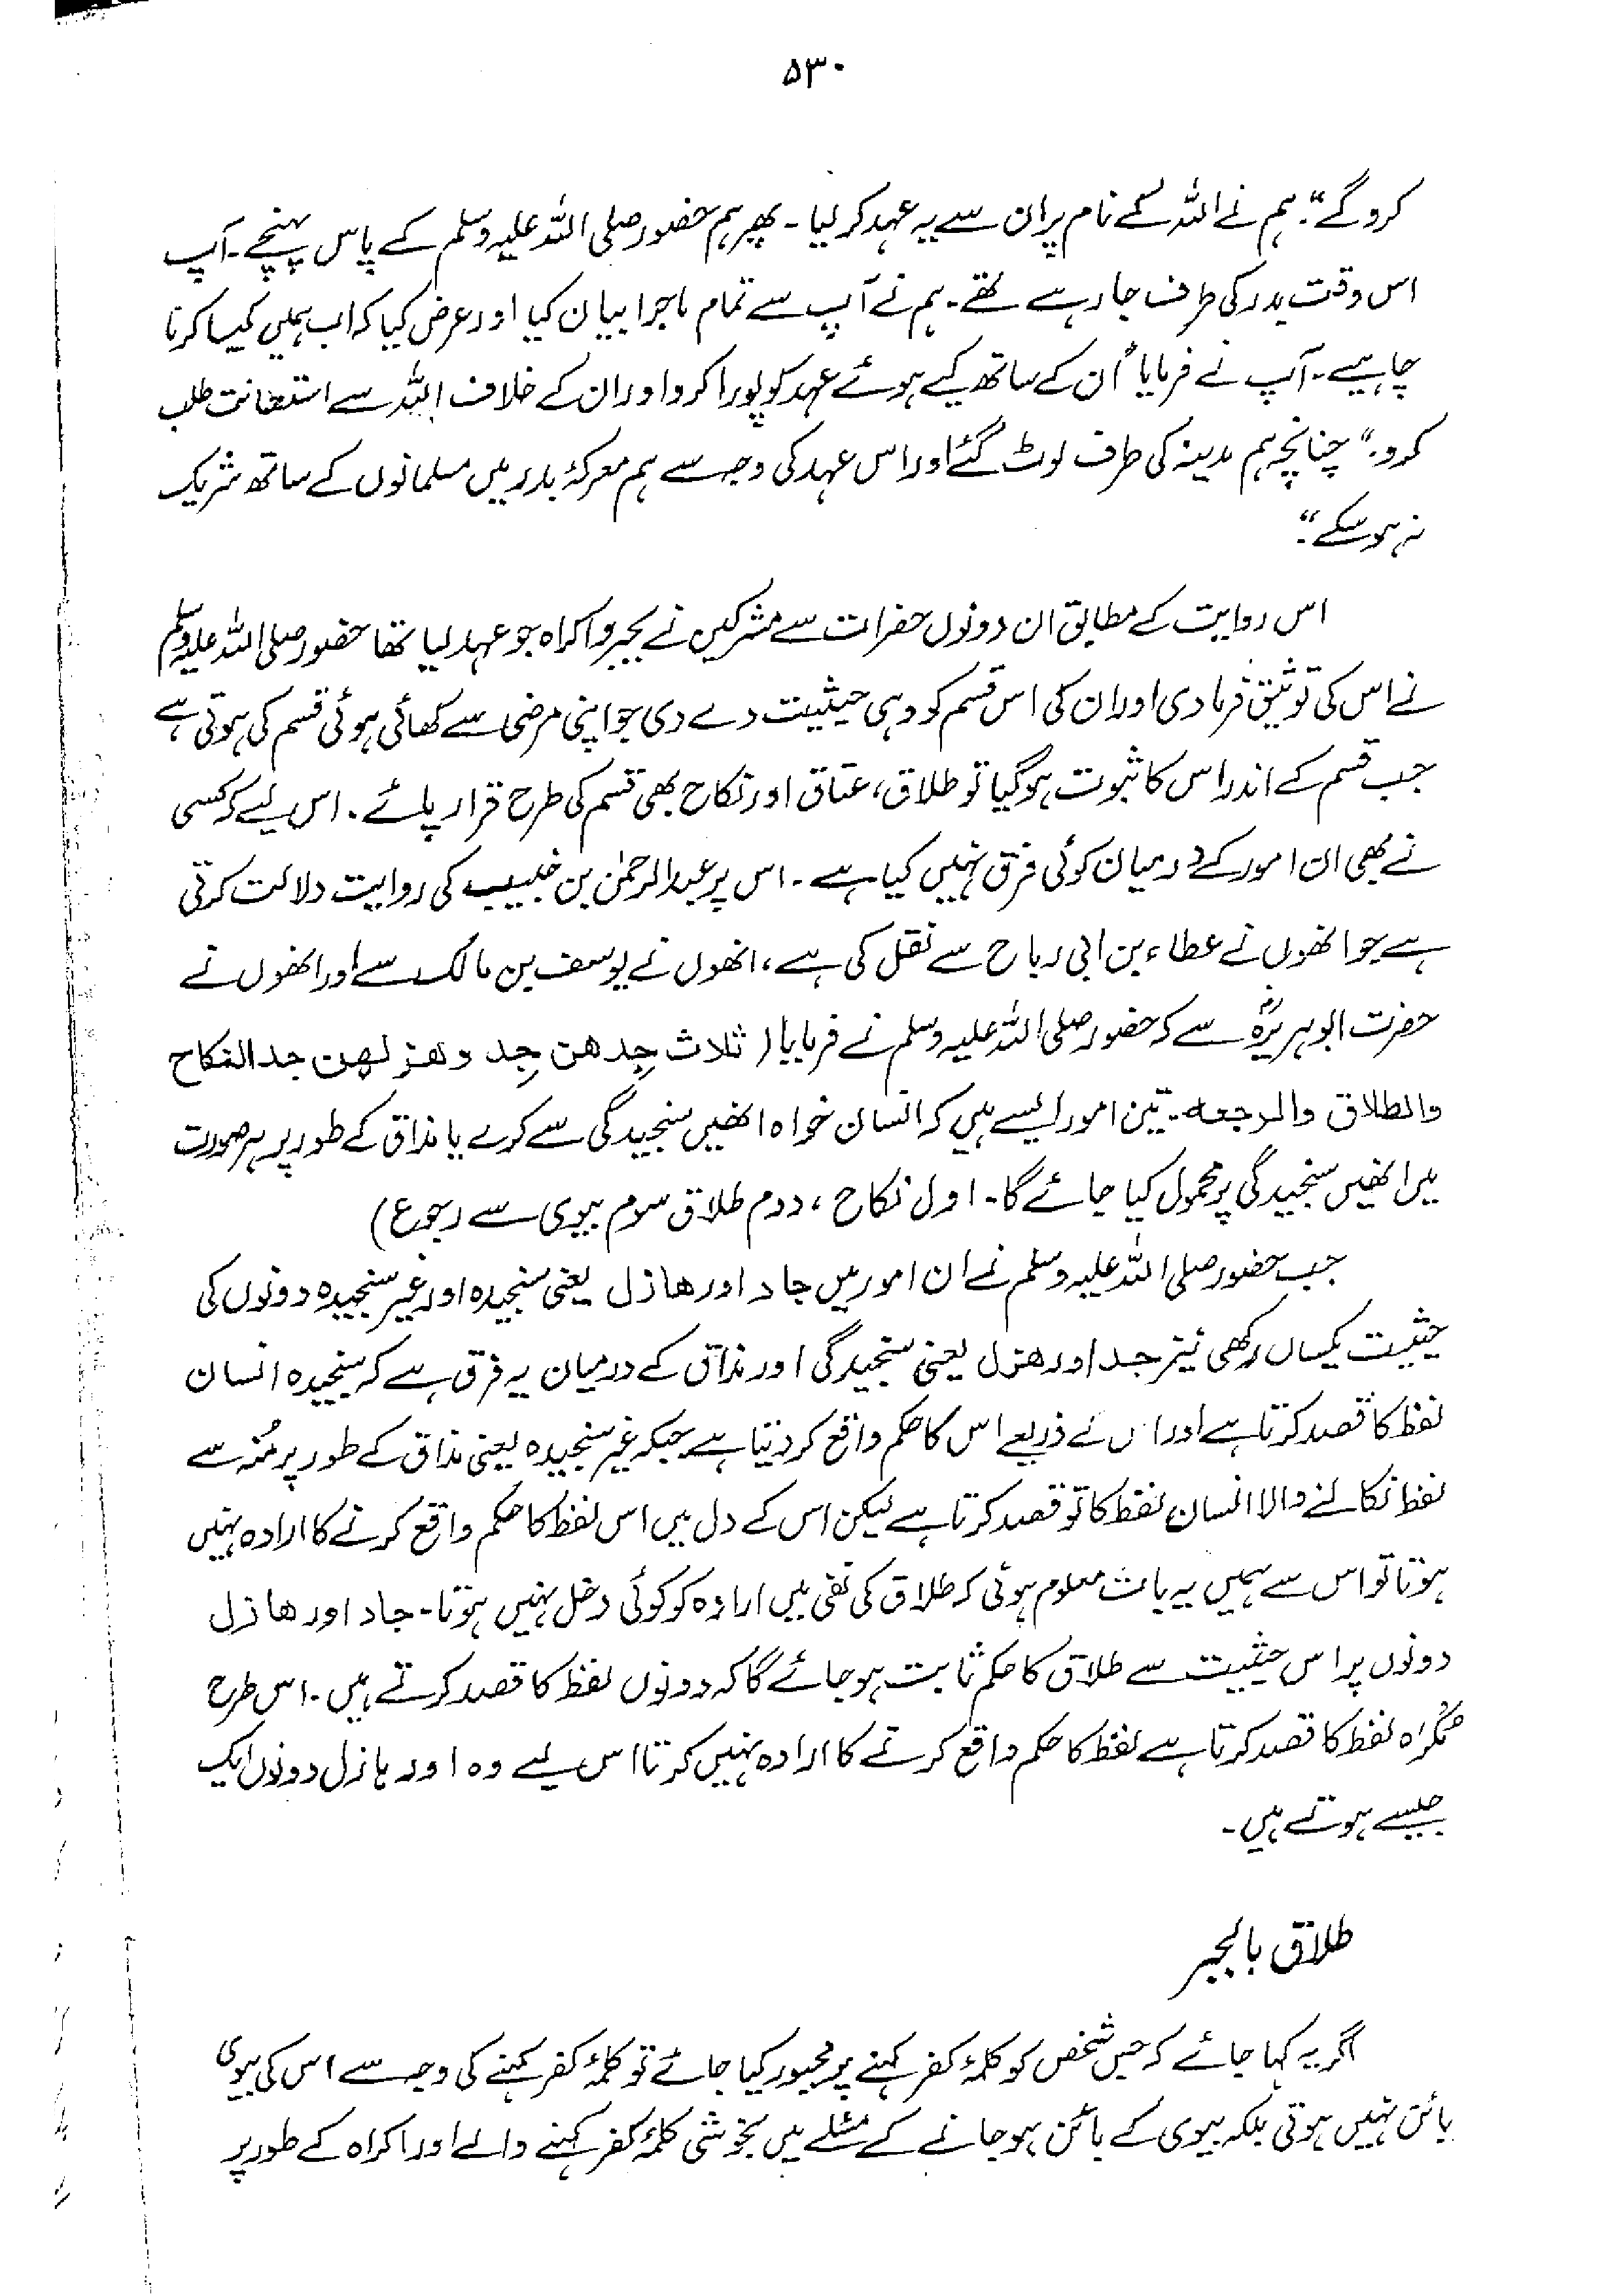 ۵۳۰
کروگے"۔ ہم نے اللہ کے نام پر ان سے یہ عہد کر لیا۔ پھر ہم حضور صلی اللہ علیہ وسلم کے پاس پہنچے۔ آپ
اس وقت بدر کی طرف جا رہے تھے۔ ہم نے آپ سے تمام ماجرا بیان کیا اور عرض کیا کہ اب ہمیں کیا کرنا
چاہیے۔ آپ نے فرمایا "ان کے ساتھ کیے ہوئے عہد کو پورا کرو اور ان کے خلاف اللہ سے استعانت طلب
کرو۔" چنانچہ ہم مدینہ کی طرف لوٹ گئے اور اس عہد کی وجہ سے ہم معرکۂ بدر میں مسلمانوں کے ساتھ شریک
نہ ہو سکے"۔
اس روایت کے مطابق ان دونوں حضرات سے مشرکین نے بجبر و اکراہ جو عہد لیا تھا حضور صلی اللہ علیہ وسلم
نے اس کی توثیق فرما دی اور ان کی اس قسم کو وہی حیثیت دے دی جو اپنی مرضی سے کھائی ہوئی قسم کی ہوتی ہے
جب قسم کے اندر اس کا ثبوت ہوگیا تو طلاق، عتاق اور نکاح بھی قسم کی طرح قرار پائے۔ اس لیے کہ کسی
نے بھی ان امور کے درمیان کوئی فرق نہیں کیا ہے۔ اس پر عبدالرحمٰن بن خبیب کی روایت دلالت کرتی
ہے جو انھوں نے عطاء بن ابی رباح سے نقل کی ہے، انھوں نے یوسف بن مالک سے اور انھوں نے
حضرت ابوہریرہؓ سے کہ حضور صلی اللہ علیہ وسلم نے فرمایا (ثلاث جِدھن جِد وھزلھن جد النکاح
والطلاق والرجعہ۔ تین امور ایسے ہیں کہ انسان خواہ انھیں سنجیدگی سے کرے یا مذاق کے طور پر ہر صورت
میں انھیں سنجیدگی پر محمول کیا جائے گا۔ اول نکاح، دوم طلاق سوم بیوی سے رجوع)
جب حضور صلی اللہ علیہ وسلم نے ان امور میں جاد اور ھازل یعنی سنجیدہ اور غیر سنجیدہ دونوں کی
حیثیت یکساں رکھی نیز جد اور ھزل یعنی سنجیدگی اور مذاق کے درمیان یہ فرق ہے کہ سنجیدہ انسان
لفظ کا قصد کرتا ہے اور اس کے ذریعے اس کا حکم واقع کر دیتا ہے جبکہ غیر سنجیدہ یعنی مذاق کے طور پر مُنہ سے
لفظ نکالنے والا انسان لفظ کا تو قصد کرتا ہے لیکن اس کے دل میں اس لفظ کا حکم واقع کرنے کا ارادہ نہیں
ہوتا تو اس سے ہمیں یہ بات معلوم ہوئی کہ طلاق کی نفی میں ارادہ کو کوئی دخل نہیں ہوتا۔ جاد اور ھازل
دونوں پر اس حیثیت سے طلاق کا حکم ثابت ہو جائے گا کہ دونوں لفظ کا قصد کرتے ہیں۔ اس طرح
مُکرَہ لفظ کا قصد کرتا ہے لفظ کا حکم واقع کرنے کا ارادہ نہیں کرتا اس لیے وہ اور ہازل دونوں ایک
جیسے ہوتے ہیں۔
طلاق بالجبر
اگر یہ کہا جائے کہ جس شخص کو کلمۂ کفر کہنے پر مجبور کیا جائے تو کلمۂ کفر کہنے کی وجہ سے اس کی بیوی
بائن نہیں ہوتی بلکہ بیوی کے بائن ہو جانے کے مسئلے میں بخوشی کلمۂ کفر کہنے والے اور اکراہ کے طور پر